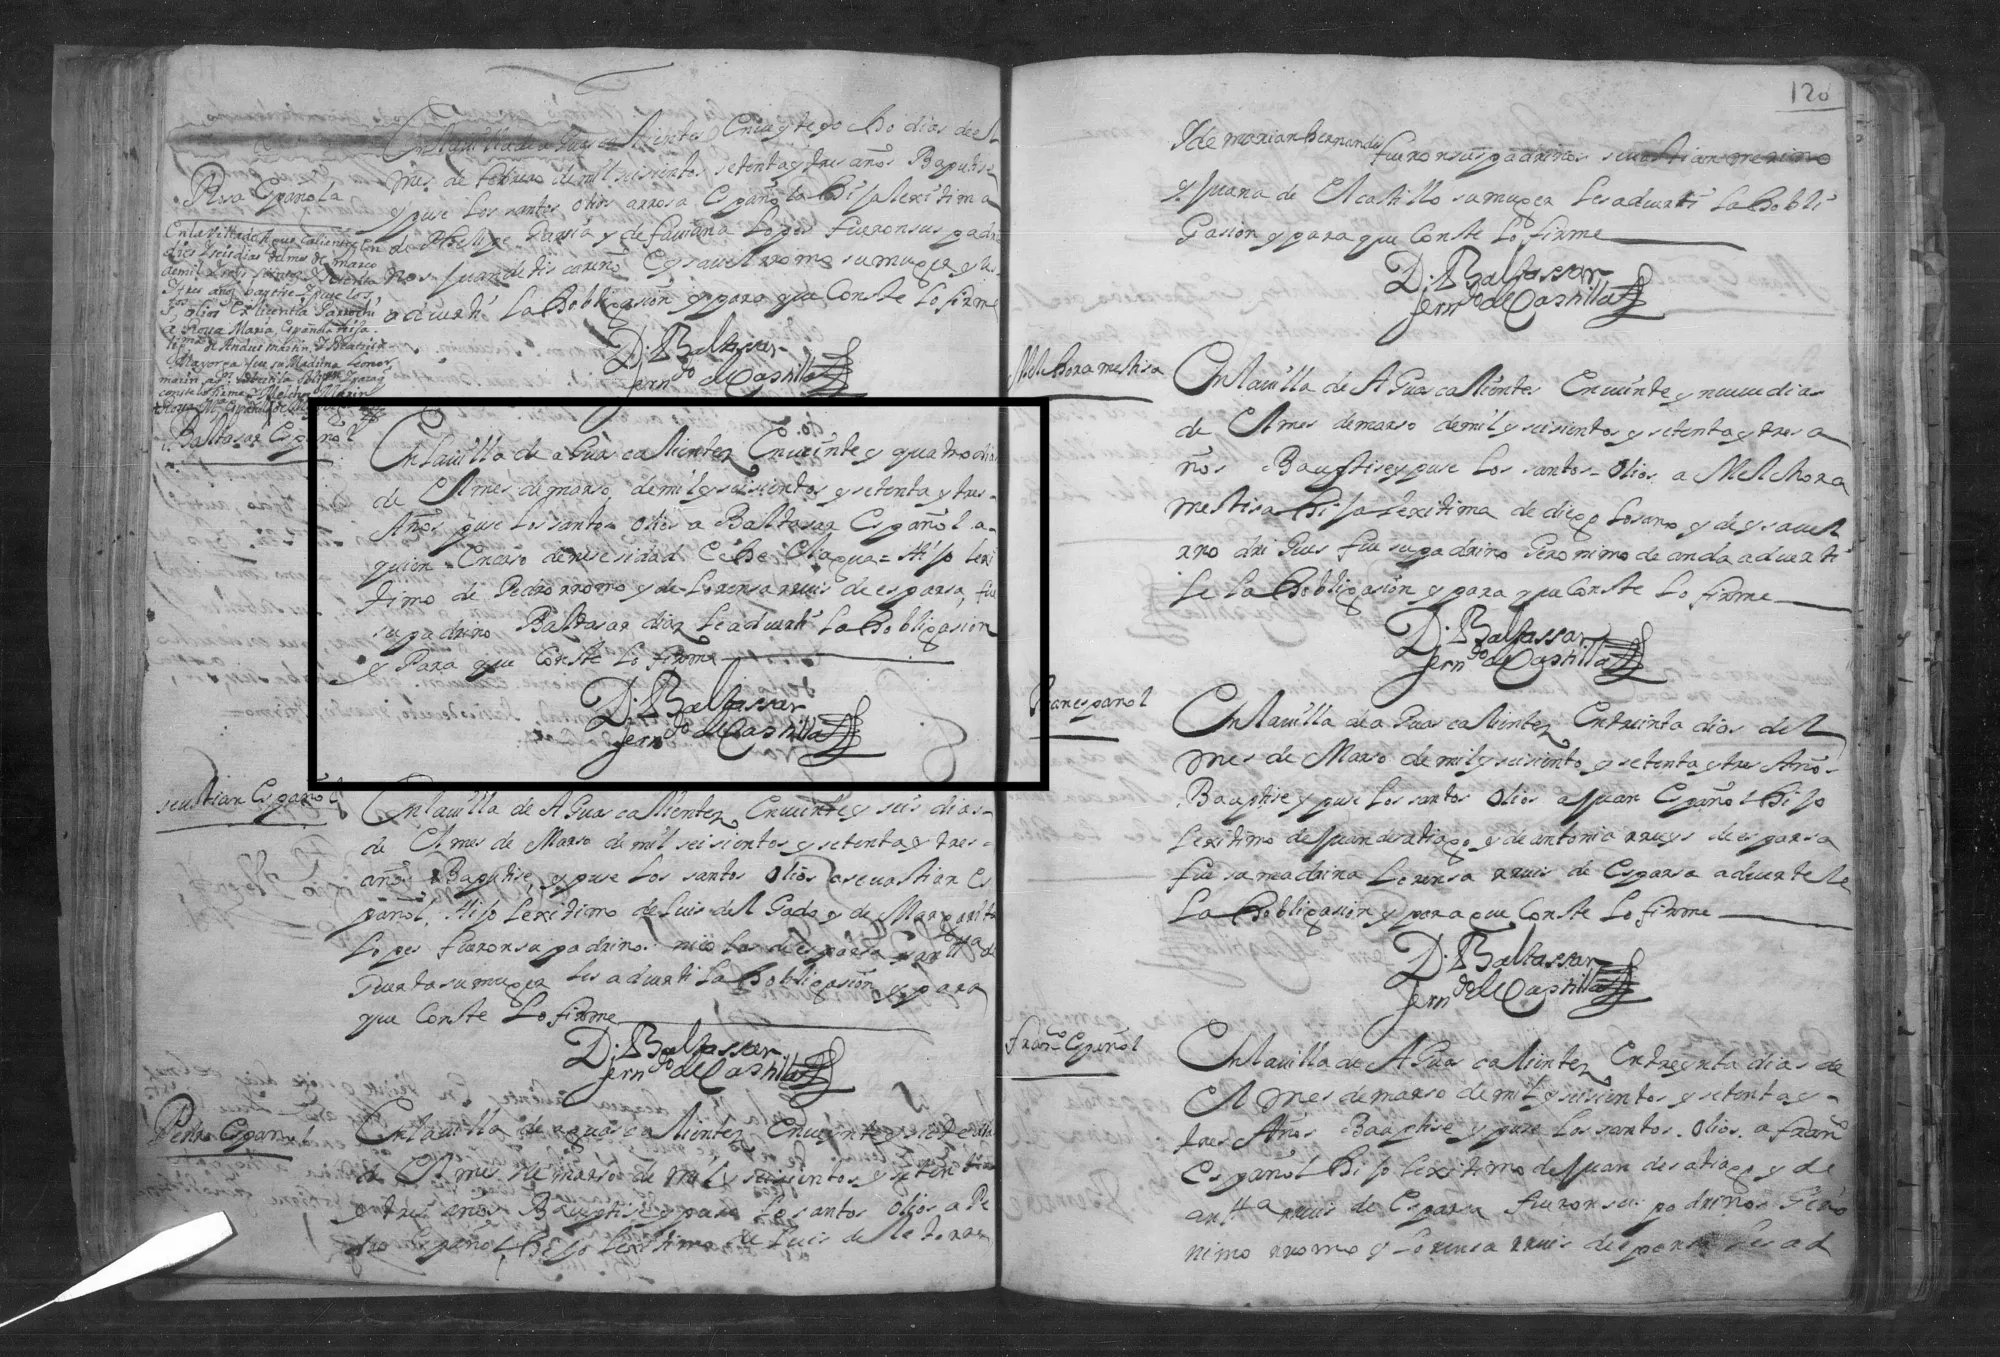 En la uilla de a Guas calientes En ueynte y o cho dias de el
Rosa Española
mes de febrero de mil seisientos setenta y tres años Baputise
y puse Los santos olios a rrosa Española hija lexitima
de Phelipe Garsia y de faustina Lopes fueron sus padri
nos Juan de tiscareño E ysauel rromo su muger y les
aduerti La hobligasion y para que Conste Lo firme
D. Baltassar
Ferndo de el Castillo
En la villa de Aguas calientes en
dies y seis dias del mes de março
de mil y seis sientos y setenta
Y tres años baptise Y puse los
Stos olios Ex licentia Parrochi
â Rosa Maria, Española hija
letima de Andres martin, Y Beatris
Mayorga fue su Madrina Leonor
marin
conste lo firme Melchor Marin
Rosa Ma Española de
Baltasar Español
En la uilla de a Guas calientes En ueinte y quatro dias
de El mes de marso de mil y seisientos y setenta y tres
Años puse Los santos olios a Baltasar Español a
quien En caso de nesesidad Eche El agua = Hijo lexi
timo de Pedro rromo y de Lorensa rruis de esparsa, fue
su padrino Baltasar dias le aduerti La hobligasion
y Para que Conste Lo firme
D. Baltassar
Ferndo de el Castillo
seuastian Español
En la uilla de A Guas calientes En ueinte y seis dias
de El mes de Marso de mil seisientos y setenta y tres
años Baputise y puse Los santos olios a seuastian Es
pañol, Hijo Lexitimo de Luis del Gado y de Margarita
Lopes fueron su padrino nicolas de esparsa y
Guerta su muger les aduerti La hobligasion y para
que Conste Lo firme
D. Baltassar
Ferndo de el Castillo
Pedro Español
En la uilla de aguas calientes En ueynte y siete dias
de El mes de marso de mil y seisientos y setenta
y tres años Bauptise y puse Los santos olios a Pe
dro Español, hijo Lexitimo de Luis de la torre
120
Y de marian hernandes fueron sus padrinos seuastian merino
y Juana de El castillo su muger les aduerti La hobli
Gasion y para que Conste Lo firme
D. Baltassar
Ferndo de el Castillo
Melchora mestisa
En la uilla de A Guas calientes En ueinte y nueue dias
de El mes de marso de mil y seisientos y setenta y tres a
ños Bauptise y puse Los santos olios a Melchora
mestisa hija Lexitima de diego Losano y de ysauel
rrodriGues fue su padrino Geronimo de anda aduerti
le La hobligasion y para que Conste Lo firme
D. Baltassar
Ferndo de el Castillo
Juan español
En la uilla de a Guas calientes En treinta dias del
mes de Marso de mil y seisiento y setenta y tres Años
Bauptise y puse Los santos olios a Juan Español hijo
Lexitimo de Juan de satiago y de antonia rruys de esparsa
fue su madrina Lorensa rruis de Esparsa aduertele
La hobligasion y para que Conste Lo firme
D. Baltassar
Ferndo de el Castillo
franco Español
En la uilla de A Guas calientes En treynta dias de
El mes de marso de mil y seisientos y setenta y
tres Años Bauptise y puse Los santos olios a franco
Español hijo Lexitimo de Juan de satiago y de
antta rruis de Esparsa fueron sus padrinos Gero
nimo rromo y Lorensa rruis de sparsa les ad